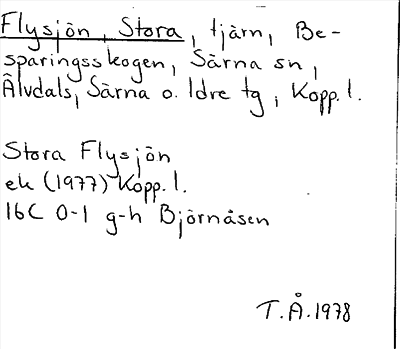 Flysjön, Stora, tjärn, Be-
sparingsskogen, Särna sn,
Älvdals, Särna o. Idre tg, Kopp. l.
Stora Flysjön
ek (1977) Kopp. l.
16C 0-1 g-h Björnåsen
T.Å. 1978